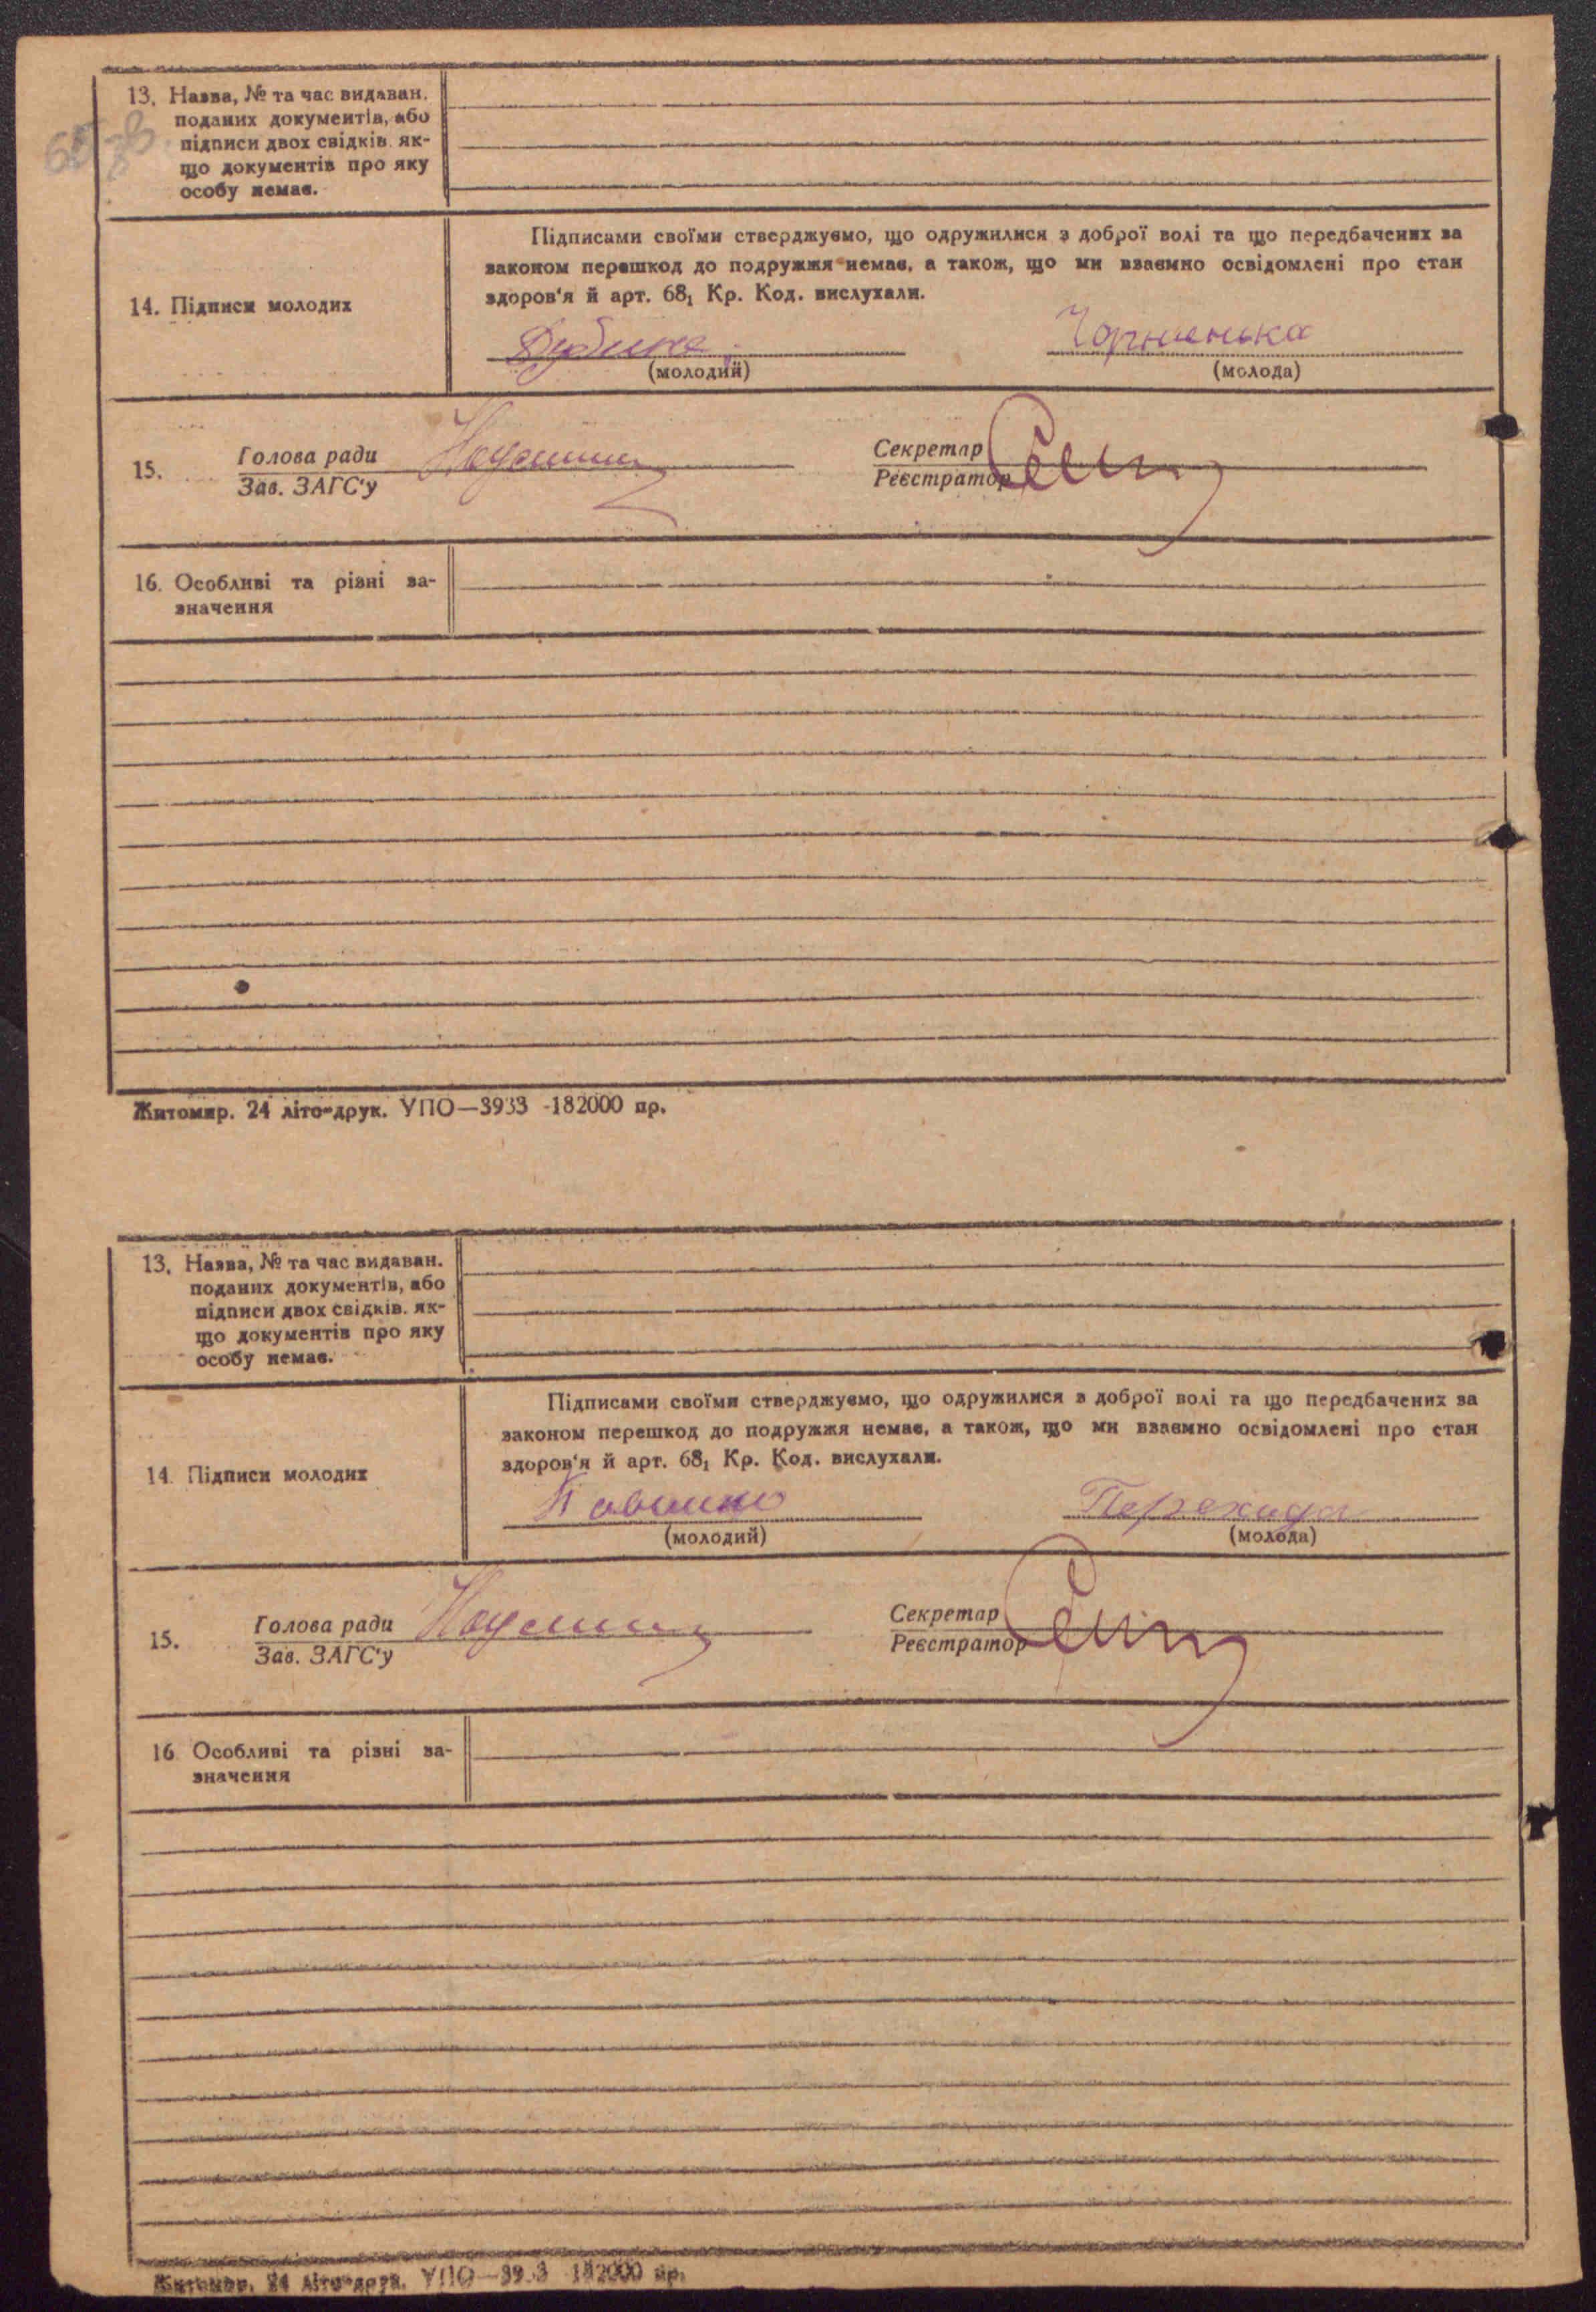 13. Назва, № та час видаван.
поданих документів, або
підписи двох свідків. як-
що документів про яку
особу немає.
Підписами своїми стверджуємо, що одружилися з доброї волі та що передбачених за
законом перешкод до подружжя немає, а також, що ми взаємно освідомлені про стан
здоров'я й арт. 68₁ Кр. Код. вислухали.
14. Підписи молодих
Дубина Чорненька
(молодий) (молода)
15. Голова ради Секретар
Зав. ЗАГС'у Реєстратор
16. Особливі та різні за-
значення
Житомир. 24 літо-друк. УПО—3933 -182000 пр.
13. Назва, № та час видаван.
поданих документів, або
підписи двох свідків. як-
що документів про яку
особу немає.
Підписами своїми стверджуємо, що одружилися з доброї волі та що передбачених за
законом перешкод до подружжя немає, а також, що ми взаємно освідомлені про стан
здоров'я й арт. 68₁ Кр. Код. вислухали.
14. Підписи молодих
Перехида
(молодий) (молода)
15. Голова ради Секретар
Зав. ЗАГС'у Реєстратор
16. Особливі та різні за-
значення
Житомир. 24 літо-друк. УПО—39.3 182000 пр.